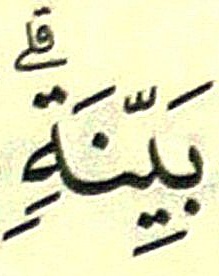 بَيِّنَةِۗ